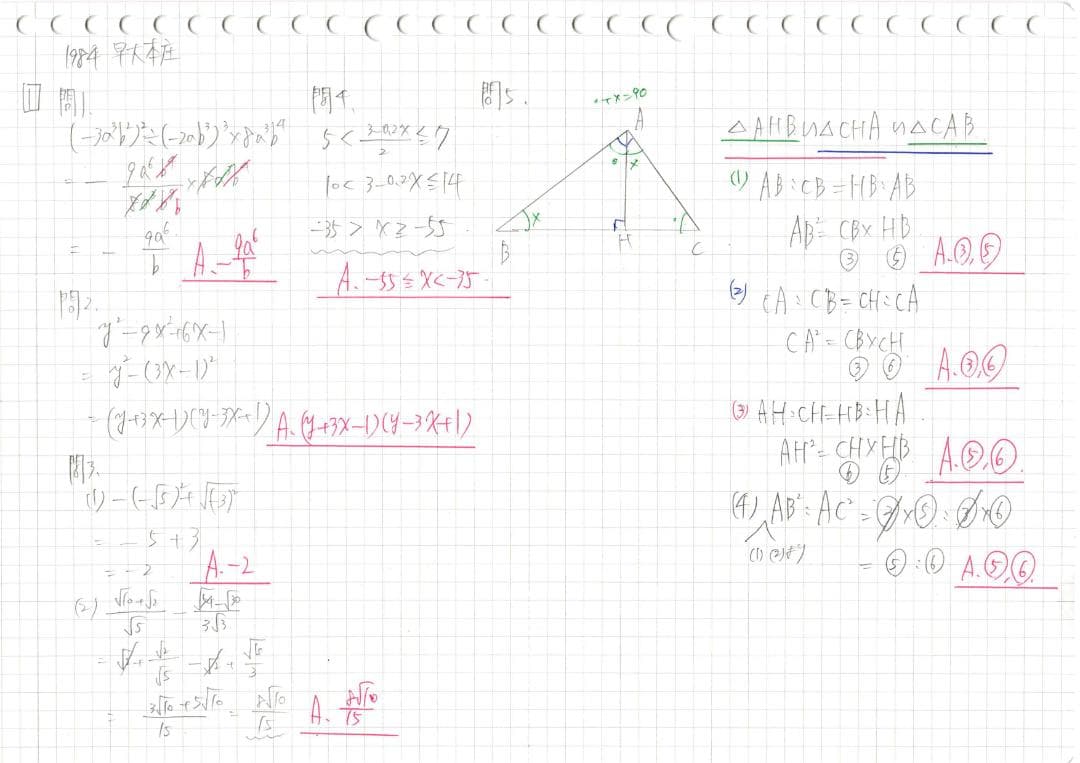 1984 早大本庄
1 問1.
(-3a³b²)²÷(-2ab³)³×8a³b⁴
= - 9a⁶b⁴/8a³b⁹ × 8a³b⁴
= - 9a⁶/b A. -9a⁶/b
問2.
y²-9x²+6x-1
= y²-(3x-1)²
=(y+3x-1)(y-3x+1) A. (y+3x-1)(y-3x+1)
問3.
(1) -(-√5)²+√(-3)²
= -5+3
= -2 A. -2
(2) (√10+√2)/√5 - (√54-√30)/3√3
= √2+√2/√5-√2+√10/3
= (3√10+5√10)/15 = 8√10/15 A. 8√10/15
問4.
5 < (3-0.2x)/2 ≦ 7
10 < 3-0.2x ≦ 14
-35 > x ≧ -55
A. -55 ≦ x < -35
問5.
・+×=90
A
×
B
H
C
△AHB∽△CHA∽△CAB
(1) AB:CB=HB:AB
AB²=CB×HB
③ ⑤ A. ③,⑤
(2) CA:CB=CH:CA
CA²=CB×CH
③ ⑥ A. ③,⑥
(3) AH:CH=HB:HA
AH²=CH×HB
⑥ ⑤ A. ⑤,⑥
(4) AB²:AC²=③×⑤:③×⑥
(1)(2)より
=⑤:⑥ A. ⑤,⑥